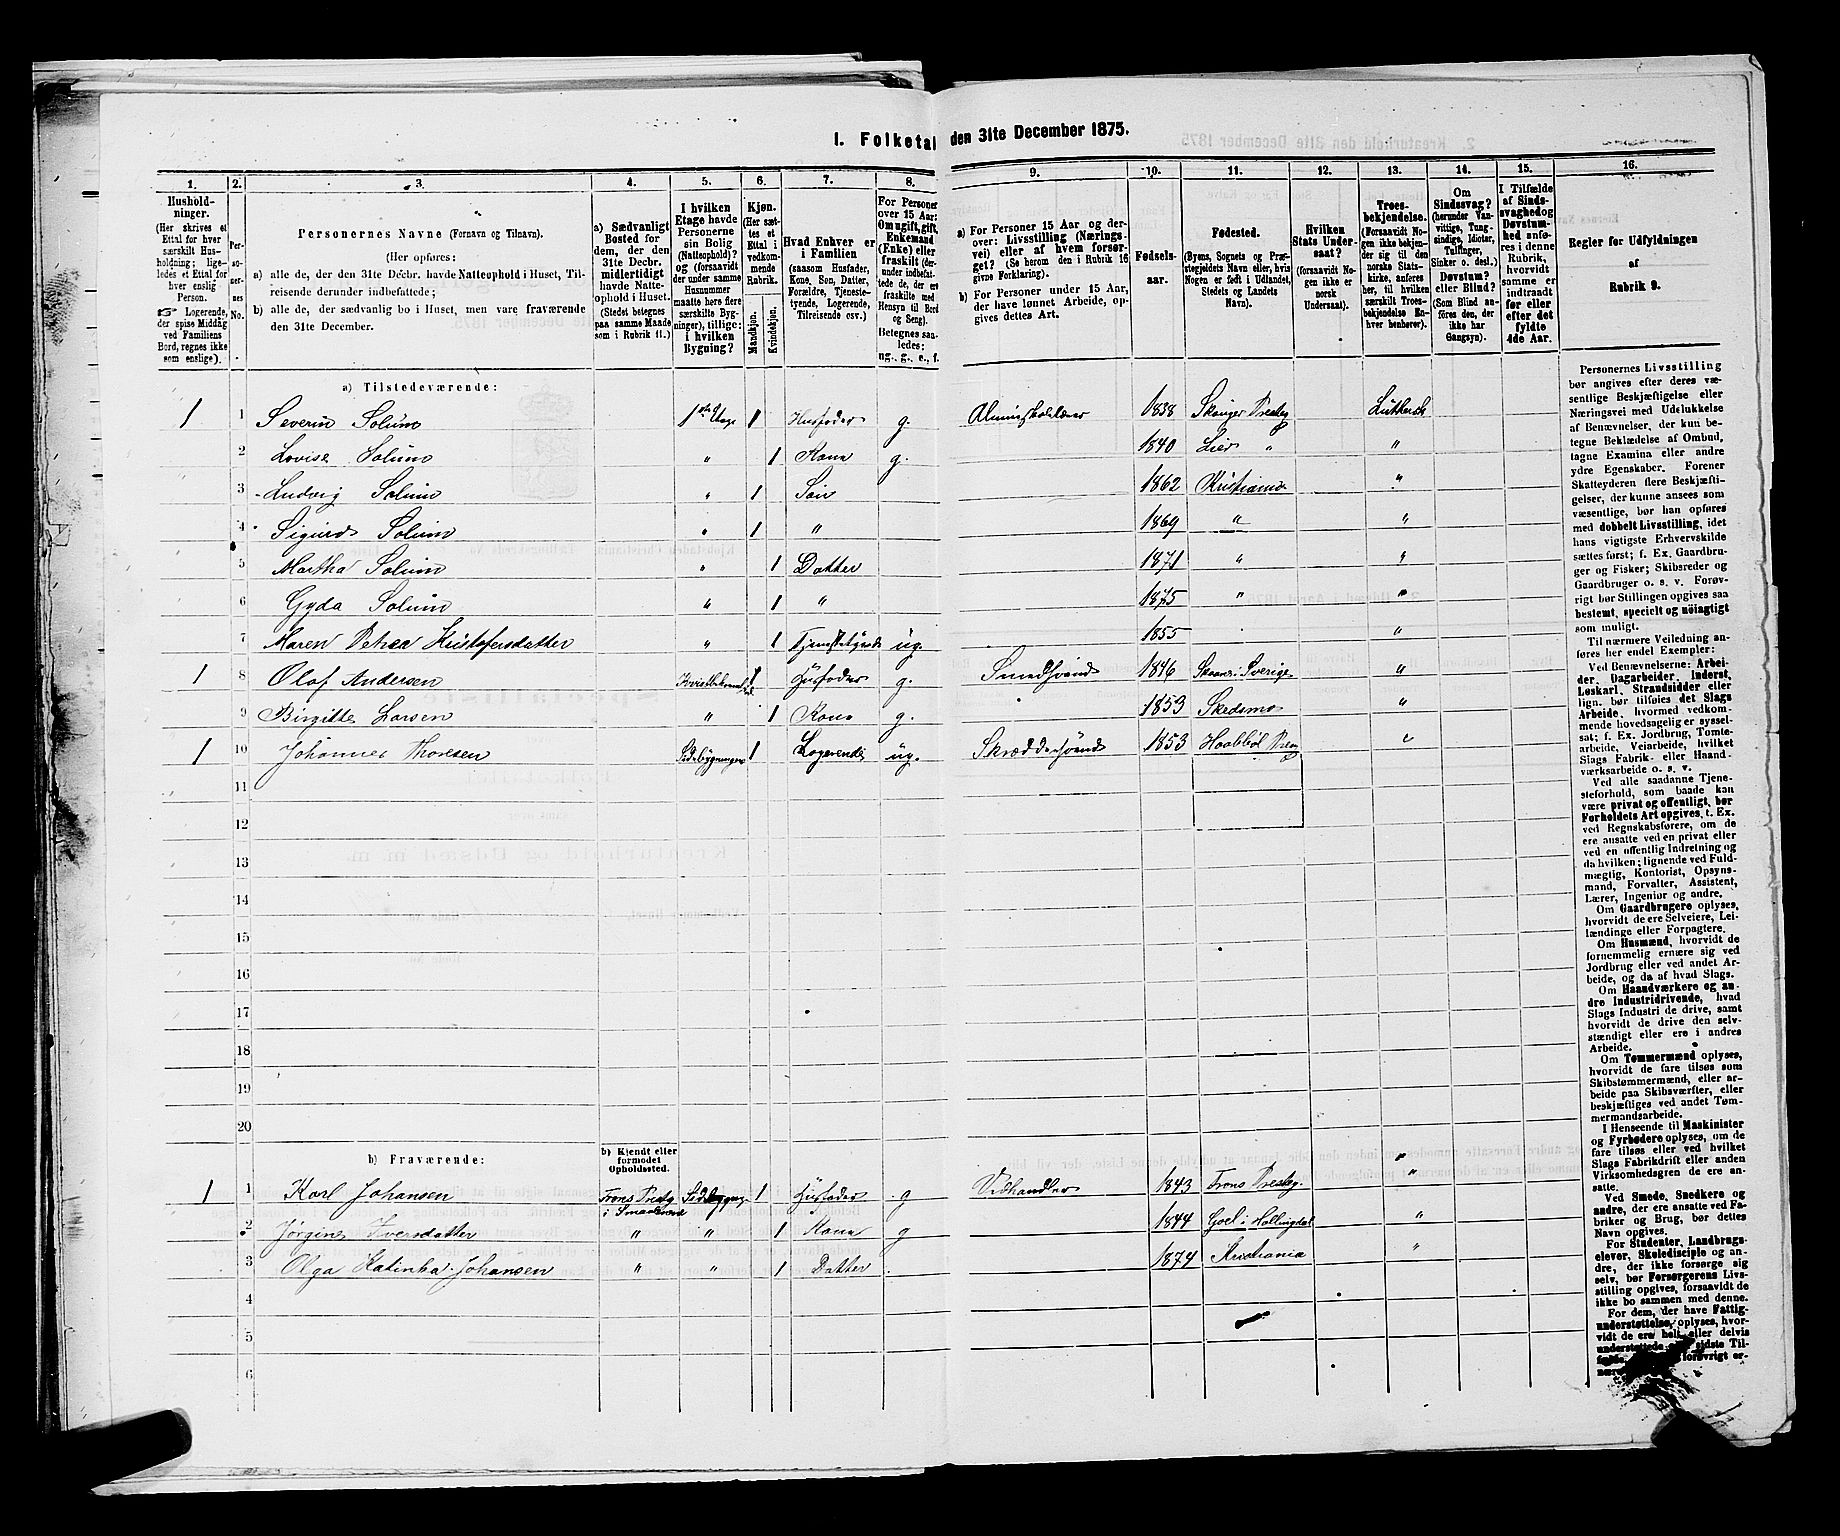 I. Folketal den 31te December 1875.
1. 2. 3. 4. 5. 6. 7. 8. 9. 10. 11. 12. 13. 14. 15. 16.
Hushold-
ninger.
(Her skrives et
Ettal for hver
særskilt Hus-
holdning; lige-
ledes et Ettal for
hver enslig
Person.
☞ Logerende,
der spise Middag
ved Familiens
Bord, regnes ikke
som enslige).
Per-
so-
ner-
nes
No.
Personernes Navne (Fornavn og Tilnavn).
(Her opføres:
a) alle de, der den 31te Decbr. havde Natteophold i Huset, Til-
reisende derunder indbefattede;
b) alle de, der sædvanlig bo i Huset, men vare fraværende
den 31te December.
a) Sædvanligt
Bosted for
dem, der den
31te Decbr.
midlertidigt
havde Natte-
ophold i Huset.
(Stedet betegnes
paa samme Maade
som i Rubrik 11.)
I hvilken
Etage havde
Personerne
sin Bolig
(Natteophold)?
og (forsaavidt
der under samme
Husnummer
maatte høre flere
særskilte Byg-
ninger), tillige:
i hvilken
Bygning?
Kjøn.
(Her sæt-
tes et
Ettal i
vedkom-
mende
Rubrik.)
Mandkjøn.
Kvindekjøn.
Hvad Enhver er
i Familien
(saasom Husfader,
Kone, Søn, Datter,
Forældre, Tjeneste-
tyende, Logerende,
Tilreisende osv.)
For Personer
over 15 Aar:
Om ugift, gift,
Enkemand
(Enke) eller
fraskilt (der-
under indbefat-
tede de, der ere
fraskilte med
Hensyn til Bord
og Seng).
Betegnes saa-
ledes:
ug., g., e., f.
a) For Personer 15 Aar og der-
over: Livsstilling (Nærings-
vei) eller af hvem forsør-
get? (Se herom den i Rubrik 16
givne Forklaring).
b) For Personer under 15 Aar,
der have lønnet Arbeide, op-
gives dettes Art.
Fødsels-
aar.
Fødested.
(Byens, Sognets og Præ-
stegjeldets Navn eller, hvis
Nogen er født i Udlandet,
Stedets og Landets
Navn).
Hvilken
Stats Under-
saat?
(forsaavidt No-
gen ikke er
norsk
Undersaat).
Troes-
bekjendelse.
(Forsaavidt No-
gen ikke bekjen-
der sig til den
norske Stats-
kirke, anføres
her, til hvilken
særskilt Troes-
bekjendelse En-
hver henhører).
Om
Sindssvag?
(herunder Van-
vittige, Tung-
sindige, Idioter,
Tullinger,
Sinker o. desl.)
Døvstum?
eller Blind?
(Som Blind an-
føres den, der
ikke har
Gangsyn).
I Tilfælde
af Sinds-
svaghed og
Døvstum-
hed anfø-
res i denne
Rubrik,
hvorvidt
samme er
indtraadt
før eller
efter det
fyldte
4de Aar.
Regler for Udfyldningen
af
Rubrik 9.
a) Tilstedeværende:
1 1 Severin Solum 1ste Etage 1 Husfader g. Almueskolelærer 1838 Skouger Præsteg Luthersk
2 Lovise Solum " 1 Kone g. 1840 Lier " "
3 Ludvig Solum " 1 Søn 1862 Kristiania "
4 Sigurd Solum " 1 " 1869 " "
5 Martha Solum " 1 Datter 1871 " "
6 Gyda Solum " 1 " 1875 " "
7 Maren Petrea Kristofersdatter " 1 Tjenestetyende ug. 1855 "
1 8 Olaf Andersen 1 Husfader g. Smedsvend 1846 Skaane i Sverige "
9 Birgitte Larsen " 1 Kone g. 1853 Skedsmo "
1 10 Johannes Thoresen Sidebygningen 1 Logerende ug. Skræddersvend 1853 Haabbøl Præsteg "
11
12
13
14
15
16
17
18
19
20
b) Fraværende:
b) Kjendt eller
formodet
Opholdssted.
1 1 Karl Johansen Trons Præsteg i Smaalenene Sidebygning 1 Husfader g Vedhandler 1843 Trons Præsteg. "
2 Jørgine Iversdatter " " 1 Kone g 1844 Goel i Hallingdal "
3 Olga Katinka Johansen " " 1 Datter 1874 Kristiania "
4
5
6
Personernes Livsstilling
bør angives efter deres væ-
sentlige Beskjæftigelse eller
Næringsvei med Udelukkelse
af Benævnelser, der kun be-
tegne Beklædelse af Ombud,
tagne Examina eller andre
ydre Egenskaber. Forener
Skatteyderen flere Beskjæfti-
gelser, der kunne ansees som
væsentlige, bør han opføres
med dobbelt Livsstilling, idet
hans vigtigste Erhvervskilde
sættes først; f. Ex. Gaardbru-
ger og Fisker; Skibsreder og
Gaardbruger o. s. v. Forøv-
rigt bør Stillingen opgives saa
bestemt, specielt og nöiagtigt
som muligt.
Til nærmere Veiledning an-
føres her endel Exempler:
Ved Benævnelserne: Arbei-
der, Dagarbeider, Inderst,
Løskarl, Strandsidder eller
lign. bør tilføies det Slags
Arbeide, hvormed vedkom-
mende hovedsagelig er syssel-
sat; f. Ex. Jordbrug, Tomte-
arbeide, Veiarbeide, hvilket
Slags Fabrik- eller Haand-
værksarbeide o. s. v.
Ved alle saadanne Tjene-
steforhold, som baade kan
være privat og offentligt, bør
Forholdets Art opgives, t. Ex.
ved Regnskabsførere, om de
ere ansatte ved en privat eller
ved en offentlig Indretning og
da hvilken; lignende ved Fuld-
mægtig, Kontorist, Opsyns-
mand, Forvalter, Assistent,
Lærer, Ingeniør og andre.
Om Gaardbrugere oplyses,
hvorvidt de ere Selveiere, Lei-
lændinge eller Forpagtere.
Om Husmænd, hvorvidt de
fornemmelig ernære sig ved
Jordbrug eller ved andet Ar-
beide, og da af hvad Slags.
Om Haandværkere og an-
dre Industridrivende, hvad
Slags Industri de drive, samt
hvorvidt de drive den selv-
stændigt eller ere i andres
Arbeide.
Om Tømmermænd oplyses,
hvorvidt de fare tilsøs som
Skibstømmermænd, eller ar-
beide paa Skibsværfter, eller
beskjæftiges ved andet Tøm-
mermandsarbeide.
I Henseende til Maskinister
og Fyrbødere oplyses, om de
fare tilsøs eller ved hvilket
Slags Fabrikdrift eller anden
Virksomhedsgren de ere an-
satte.
Ved Smede, Snedkere og
andre, der ere ansatte ved Fa-
briker og Brug, bør dettes
Navn opgives.
For Studenter, Landbrugs-
elever, Skoledisciple og an-
dre, der ikke forsørge sig
selv, bør Forsørgerens Livs-
stilling opgives, forsaavidt de
ikke bo sammen med denne.
For dem, der have Fattig-
understøttelse, oplyses, hvor-
vidt de ere helt eller delvis
understøttede sidste Til-
forøvrigt er-